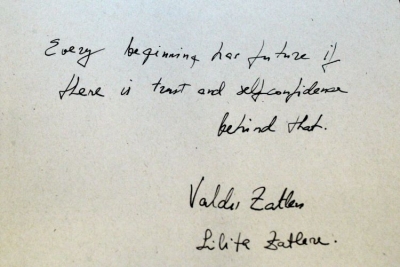 Every beginning has future if
there is trust and selfconfidence
behind that.
Valdis Zatlers
Lilita Zatlere.